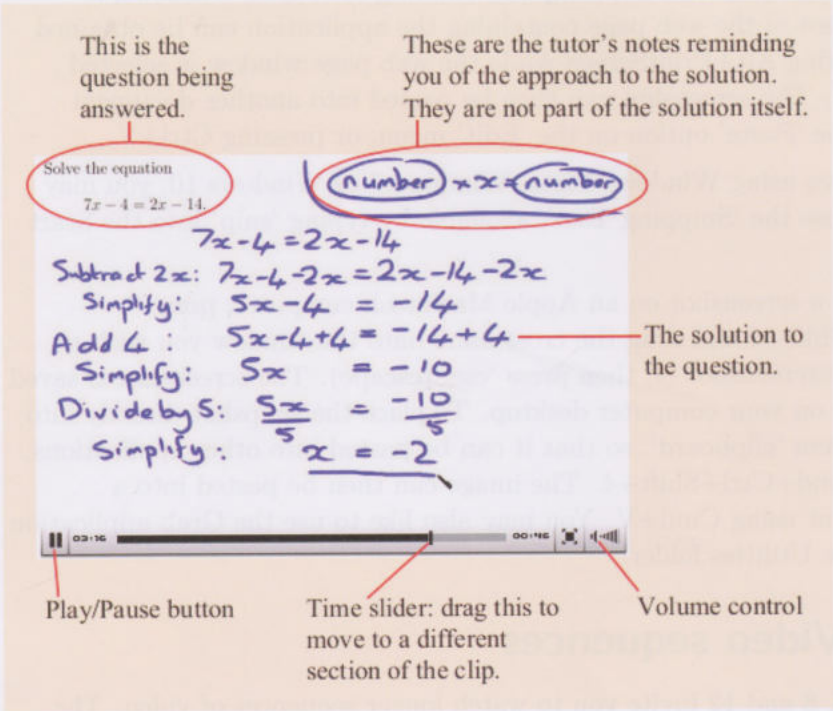 This is the
question being
answered.
These are the tutor's notes reminding
you of the approach to the solution.
They are not part of the solution itself.
Solve the equation
7x − 4 = 2x − 14.
number × x = number
7x-4 = 2x-14
Subtract 2x: 7x-4-2x = 2x-14-2x
Simplify: 5x-4 = -14
Add 4 5x-4+4 = -14+4
Simplify: 5x = -10
Divide by 5: 5x/5 = -10/5
Simplify: x = -2
The solution to
the question.
03:16
00:46
Play/Pause button
Time slider: drag this to
move to a different
section of the clip.
Volume control